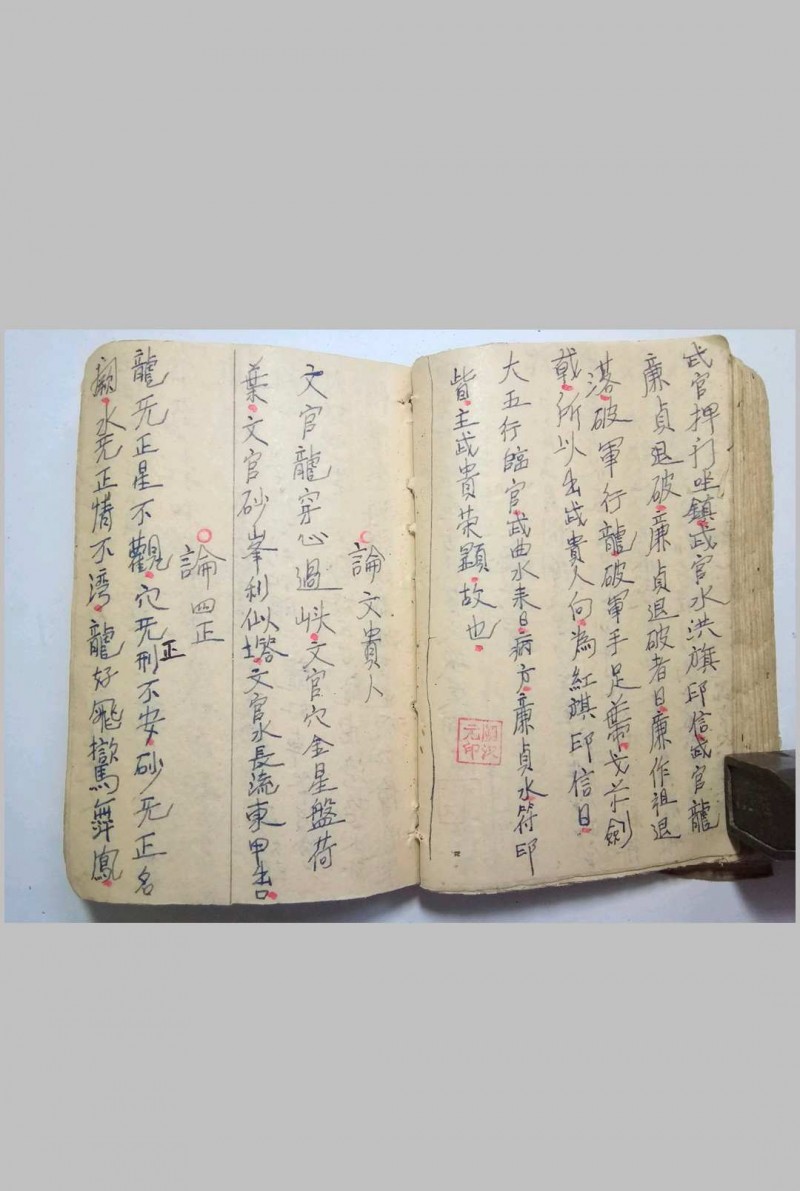 武官押打坐鎮武官水洪旗印信武官龍
廉貞退破廉貞退破者曰廉作祖退
落破軍行龍破軍手足葉戈矛劍
戟所以出武貴人向為紅旗印信曰
大五行臨官武曲水来曰病方廉貞水符印
皆主武貴荣顕故也
元印
論文貴人
文官龍穿心過峡文官穴金星盤荷
葉文官砂峯利似塔文官水長流東甲吉
論四正
龍旡正星不觀穴旡正刑不安砂旡正名
水旡正情不湾龍好飛鸞舞鳳